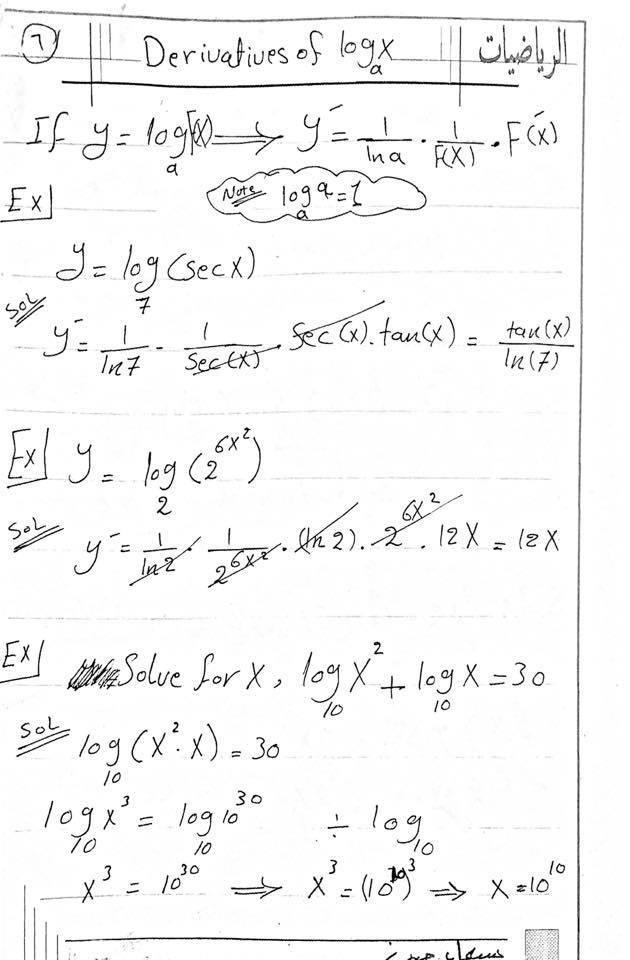 7 Derivatives of logₐx الرياضيات
If y = logₐF(x) ⟹ y' = 1/ln a · 1/F(x) · F'(x)
Ex
Note logₐa = 1
y = log₇(sec x)
SOL
y' = 1/ln7 · 1/sec(x) · sec(x) · tan(x) = tan(x)/ln(7)
Ex y = log₂(2^(6x²))
SOL
y' = 1/ln2 · 1/2^(6x²) · (ln 2) · 2^(6x²) · 12x = 12x
Ex Solve for x, log₁₀x² + log₁₀x = 30
SOL
log₁₀(x² · x) = 30
log₁₀x³ = log₁₀10³⁰ ÷ log₁₀
x³ = 10³⁰ ⟹ x³ = (10¹⁰)³ ⟹ x = 10¹⁰